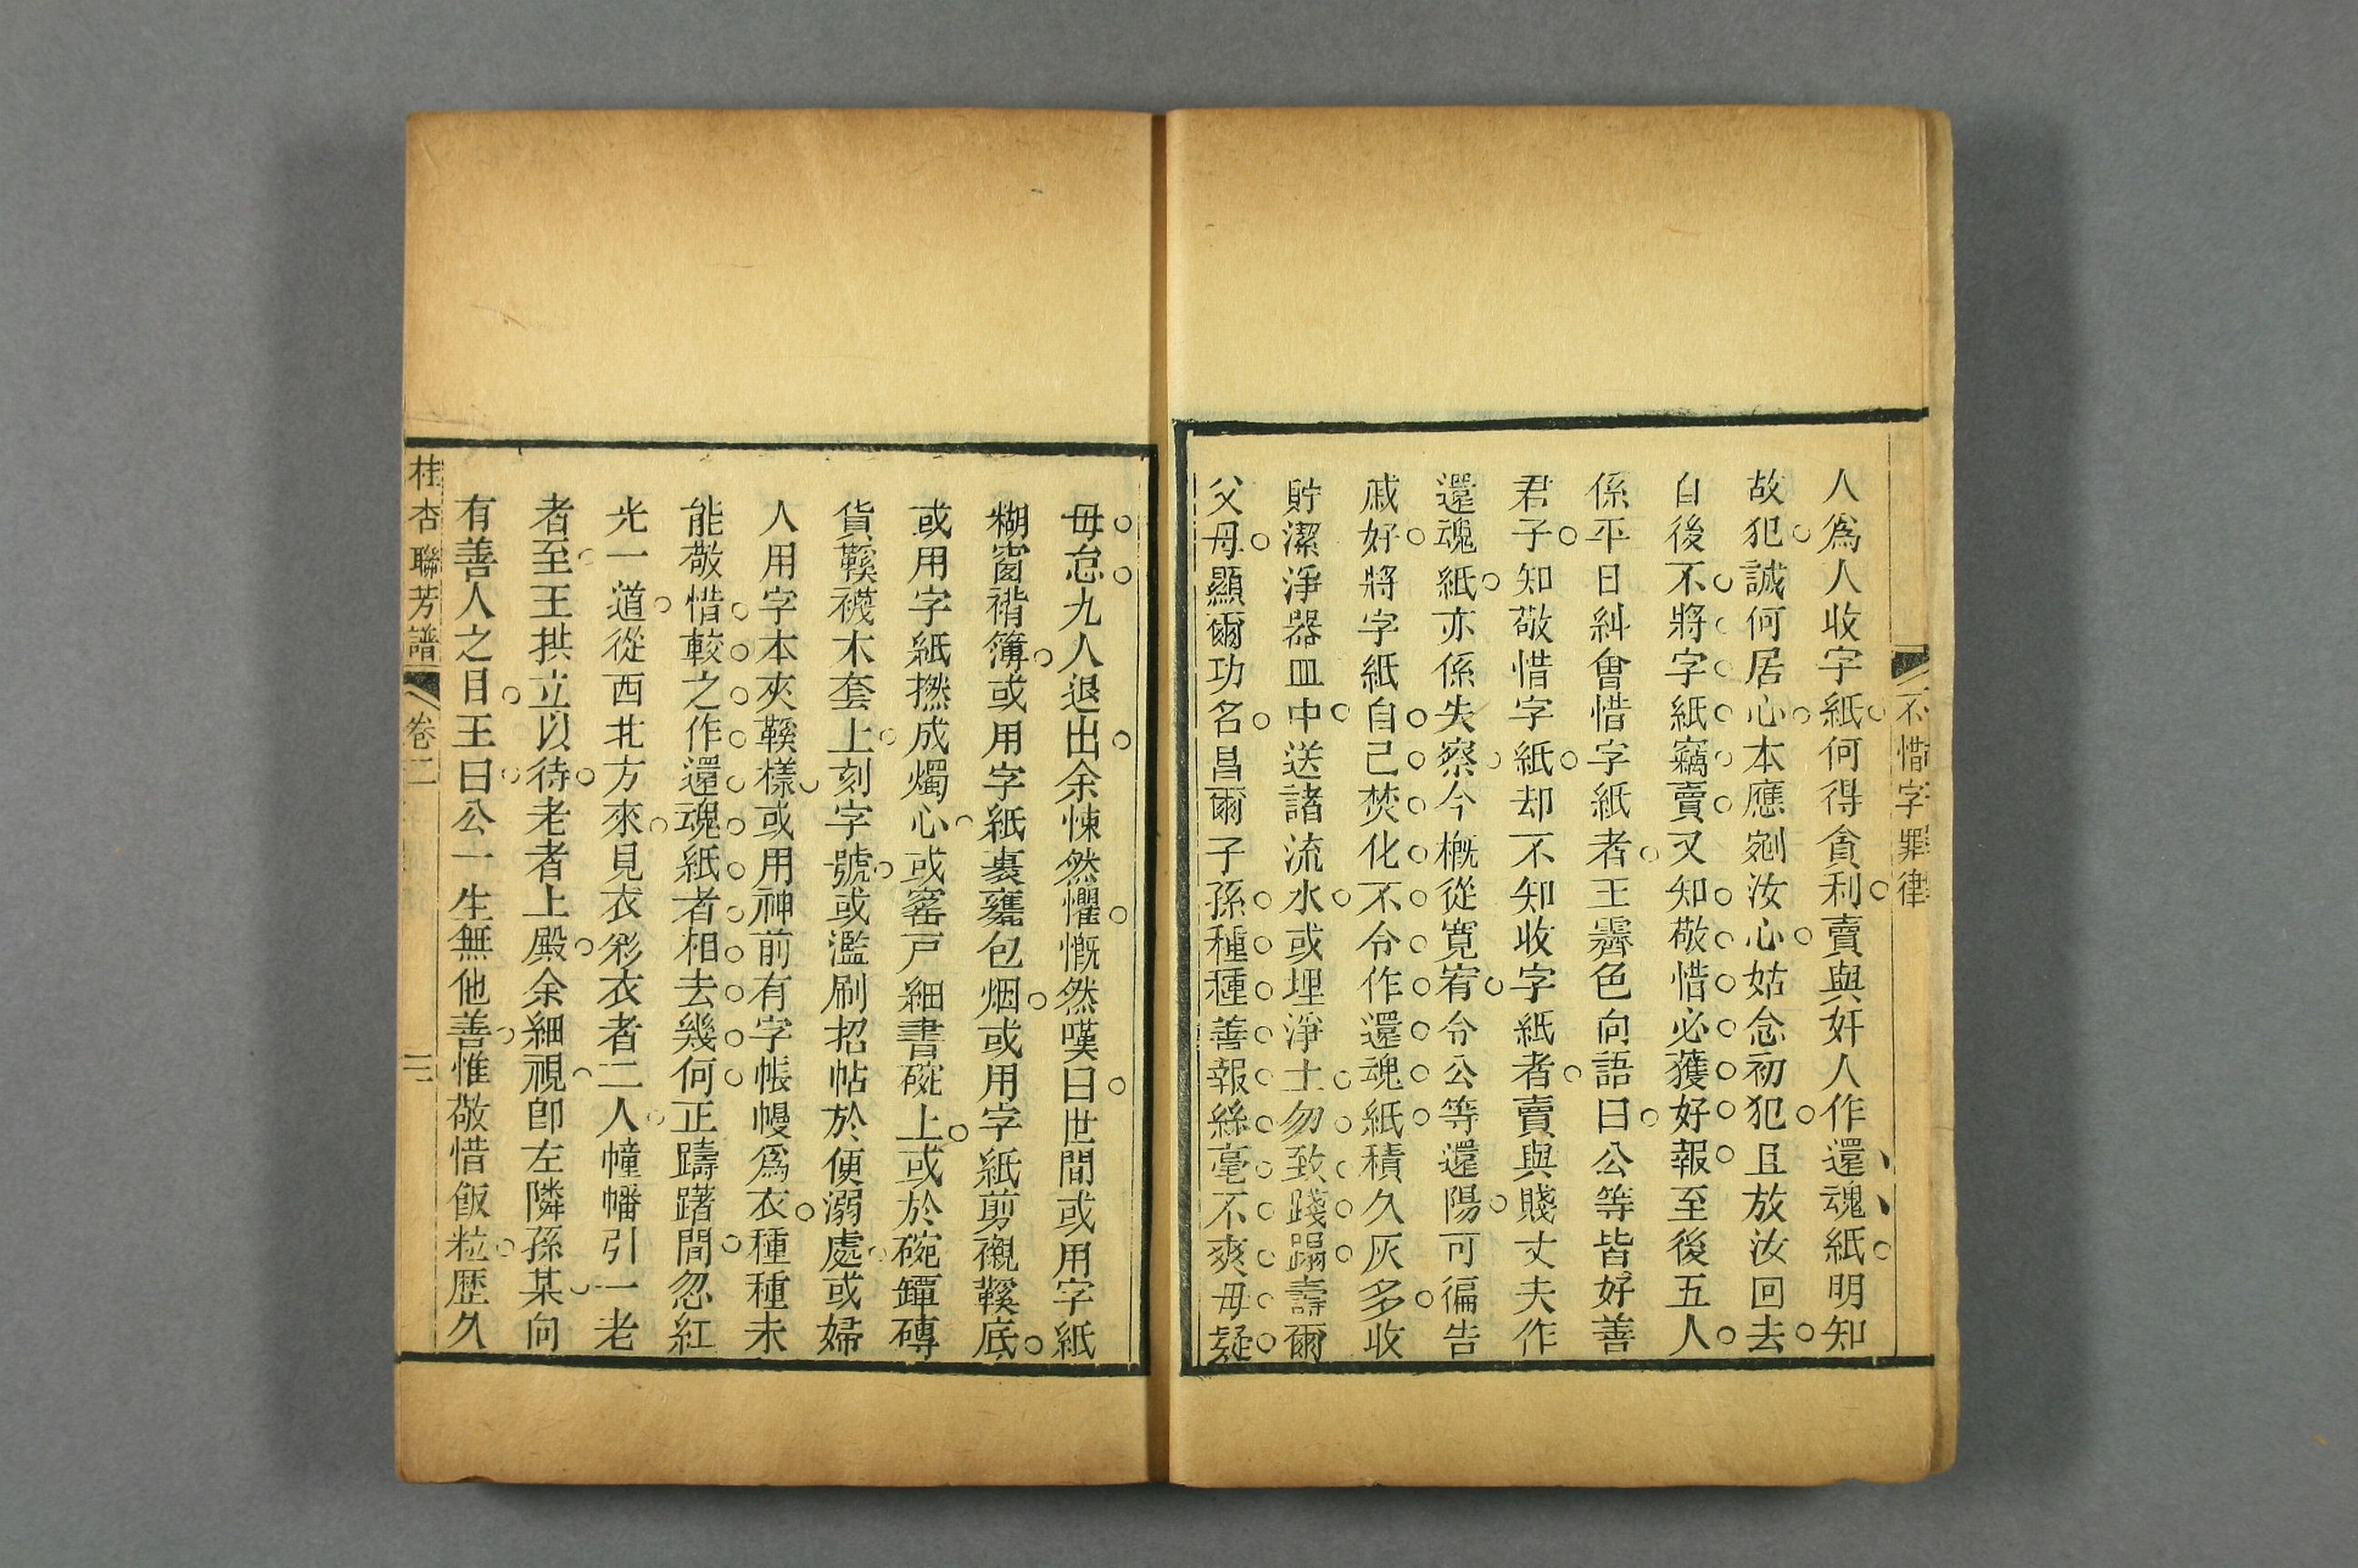 不惜字罪律
人爲人收字紙何得貪利賣與奸人作還魂紙明知
故犯誠何居心本應剜汝心姑念初犯且放汝回去
自後不將字紙竊賣又知敬惜必獲好報至後五人
係平日糾會惜字紙者王霽色向語曰公等皆好善
君子知敬惜字紙却不知收字紙者賣與賤丈夫作
還魂紙亦係失察今概從寬宥令公等還陽可徧告
戚好將字紙自己焚化不令作還魂紙積久灰多收
貯潔淨器皿中送諸流水或埋淨土勿致踐蹋壽爾
父母顯爾功名昌爾子孫種種善報絲毫不爽毋疑
毋怠九人退出余悚然懼慨然嘆曰世間或用字紙
糊窗褙簿或用字紙裹甕包烟或用字紙剪襯鞵底
或用字紙撚成燭心或窰戸細書碗上或於碗罈磚
貨鞵襪木套上刻字號或濫刷招帖於便溺處或婦
人用字本夾鞵樣或用神前有字帳幔爲衣種種未
能敬惜較之作還魂紙者相去幾何正躊躇間忽紅
光一道從西北方來見衣彩衣者二人幢幡引一老
者至王拱立以待老者上殿余細視卽左隣孫某向
有善人之目王曰公一生無他善惟敬惜飯粒歷久
桂杏聯芳譜 卷二 三